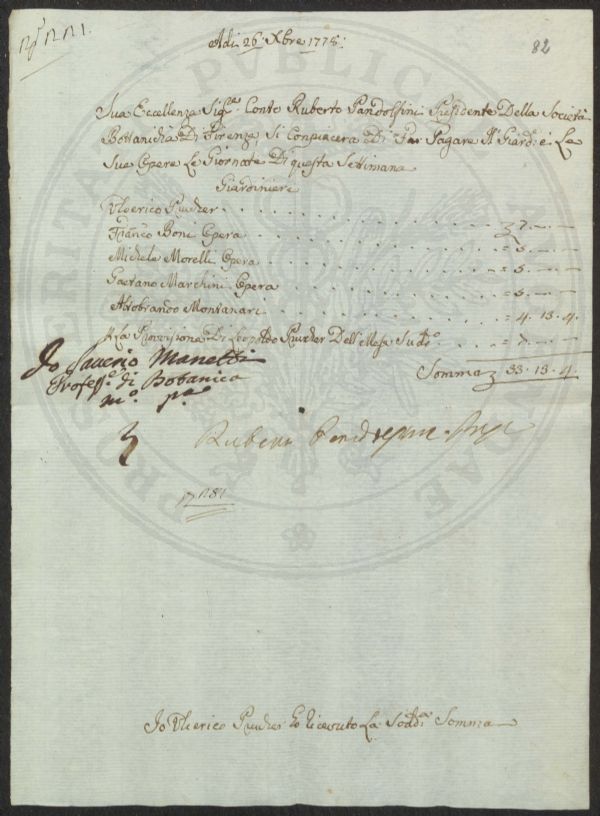 Adi 26 Xbre 1778:
82
Sua Eccellenza Sigre. Conte Ruberto Pandolfini Presidente Della Società
Bottanicha Di Firenze, Si Conpiacera Di Far Pagare Il Giard: e Le
Sue Opere Le Giornate Di questa Settimana
Giardiniere
Ulderico
Franco Boni Opera = 5
Michele Morelli Opera = 5
Gaetano Marchini Opera = 5
Aldobrando Montanari = 4. 13. 4.
A La Provisione Di Leopoldo Dell Mese Sudo. = 7
Somma 33. 13. 4.
Io Saverio Manetti
Profess. di Botanica
mo. pa.
Ruberto Pandolfini
Io Ulderico ho riceuto La Sodda. Somma
PROSPERITATI PUBLICAE AUGENDAE